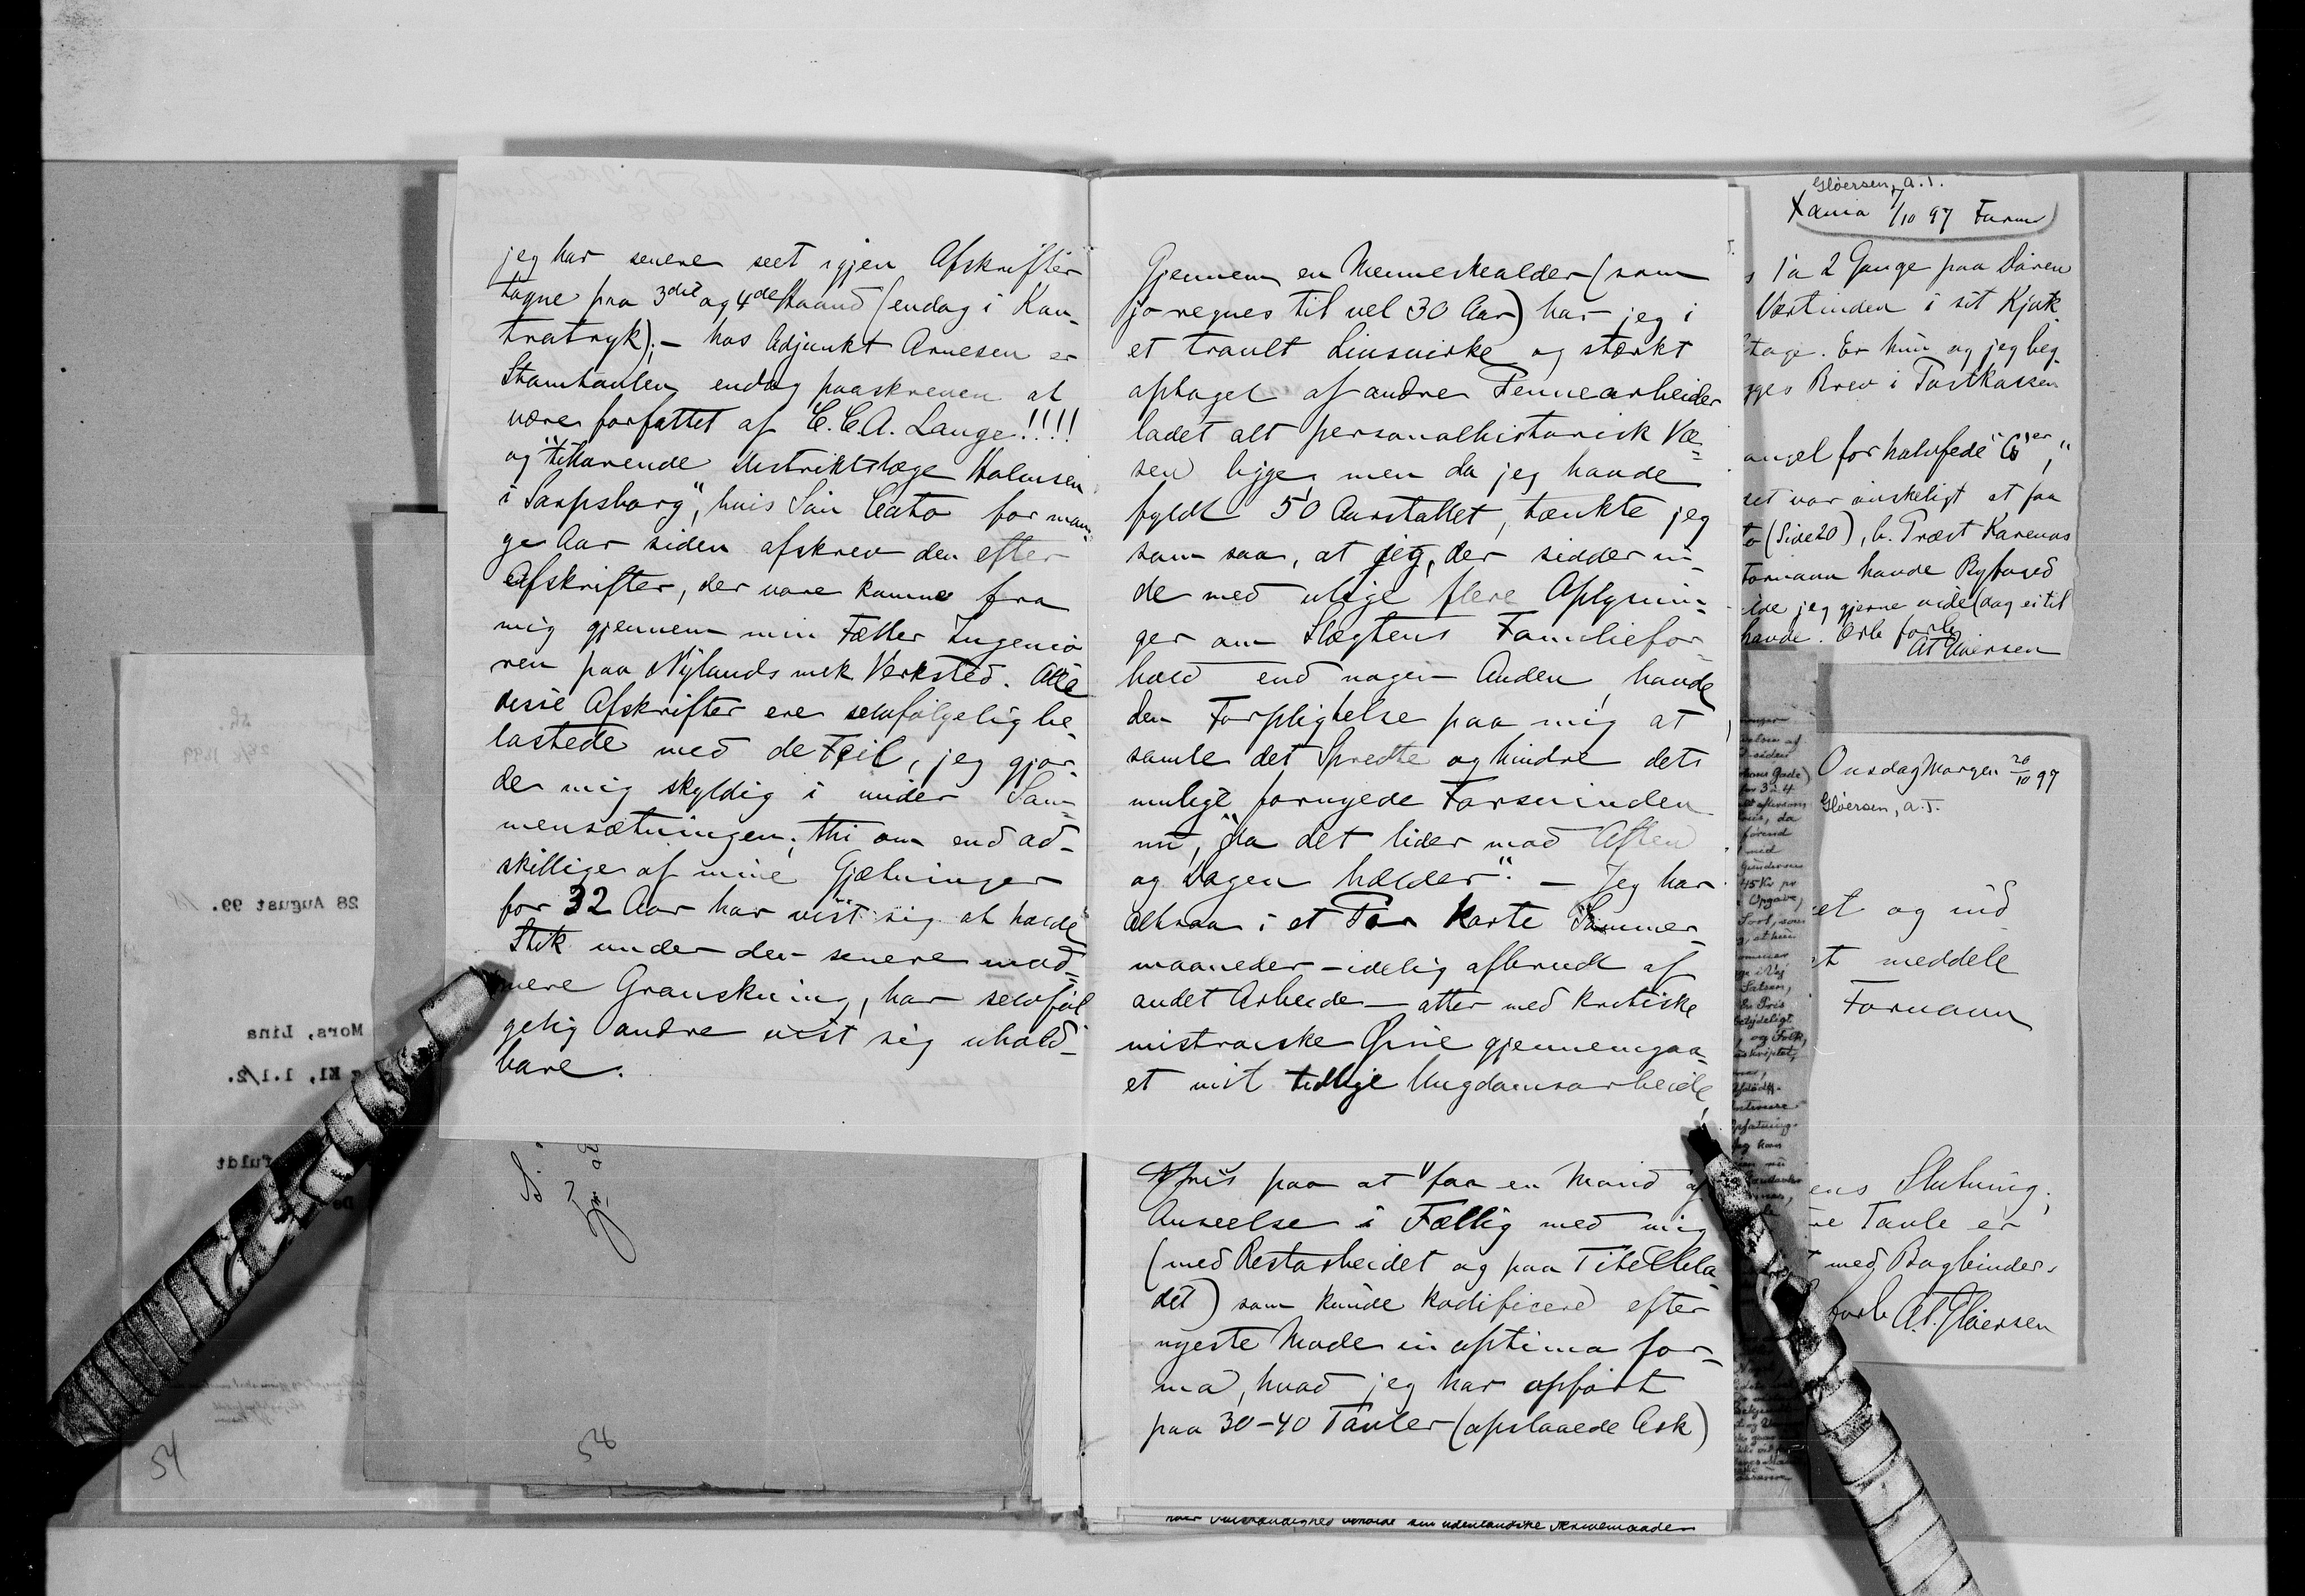 jeg har senere seet igjen Afskrifter
tagne paa 3die og 4de Haand (endog i Kon-
tratryk); - hos Adjunkt Arnesen er
Stamtavlen endog paaskreven at
være forfattet af C.C.A. Lange!!!!
og "tilhørende Distriktslæge Holmsen
i Sarpsborg", hvis Søn Cato for man-
ge Aar siden afskrev den efter
Afskrifter, der vare komne fra
mig gjennem min Fætter Ingeniø
ren paa Nylands mek. Verksted. Alle
disse Afskrifter ere selvfølgelig be-
lastede med de Feil, jeg gjor-
de mig skyldig i under Sam-
mensætningen; thi om end ad-
skillige af mine Gjætninger
for 32 Aar har vist sig at holde
Stik under den senere mod-
nere Granskning, har selvføl
gelig andre vist sig uhold-
bare.
Gjennem en Menneskealder (som
jo regnes til vel 30 Aar) har jeg i
et travlt Livsvirke og stærkt
optaget af andre Pennearbeider
ladet alt personalhistorisk Væ-
sen ligge, men da jeg havde
fyldt 50 Aarstallet, tænkte jeg
som saa, at jeg, der sidder in-
de med ulige flere Oplysnin-
ger om Slægtens Familiefor-
hold end nogen Anden, havde
den Forpligtelse paa mig at
samle det Spredte og hindre dets
muligt fornyede Forsvinden
nu, "da det lider mod Aften
og Dagen hælder". - Jeg har
altsaa i et Par korte Sommer-
maaneder - idelig afbrudt af
andet Arbeide - atter med kritiske
mistroiske Øine gjennemgaa-
et mit tidlige Ungdomsarbeide,
Pris paa at faa en Mand af
Anseelse i Fællig med mig
(med Restarbeidet og paa Titelbla-
det) som kunde kodificere efter
nyeste Mode in optima for-
ma, hvad jeg har opført
paa 30-40 Tavler (opslaaede Ark)
Gløersen, A.T.
Xania 1/10 97
1 a 2 Gange paa Døren
Værtinden i sit Kjøk
tage. Er hun og jeg beg
gges Brev i Postkassen
angel for halvfede
set var ønskeligt at faa
to (Side 20), h. Præst
Formann havde
jeg gjerne vide
havde. Ærb forb
AT Gløersen
Onsdag Morgen 20/10 97
Gløersen, A.T.
et og ind
t meddele
Formann
ens Slutning;
re Tavle er
med Bogbinder.
forb A.T. Gløersen
28 August 99.
Mors, Lina
Kl, 1.1/2.
fuldt
54
54